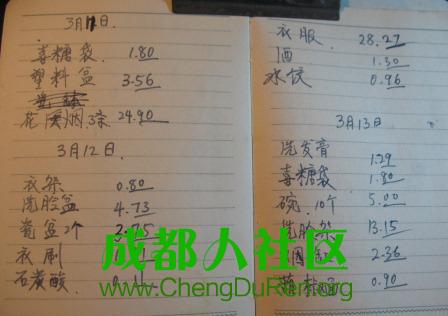 3月11日.
喜糖袋 1.80
塑料盆 3.56
花溪烟.3条 24.90
3月12日.
衣架 0.80
洗脸盆 4.73
瓷盆2个
衣刷
石炭酸
衣服 28.27
酒 1.30
水饺 0.96
3月13日
洗发膏 1.29
喜糖袋 1.80
碗.10个 5.00
洗脸架 13.15
2.36
0.90
成都人社区
www.ChengDuRen.org